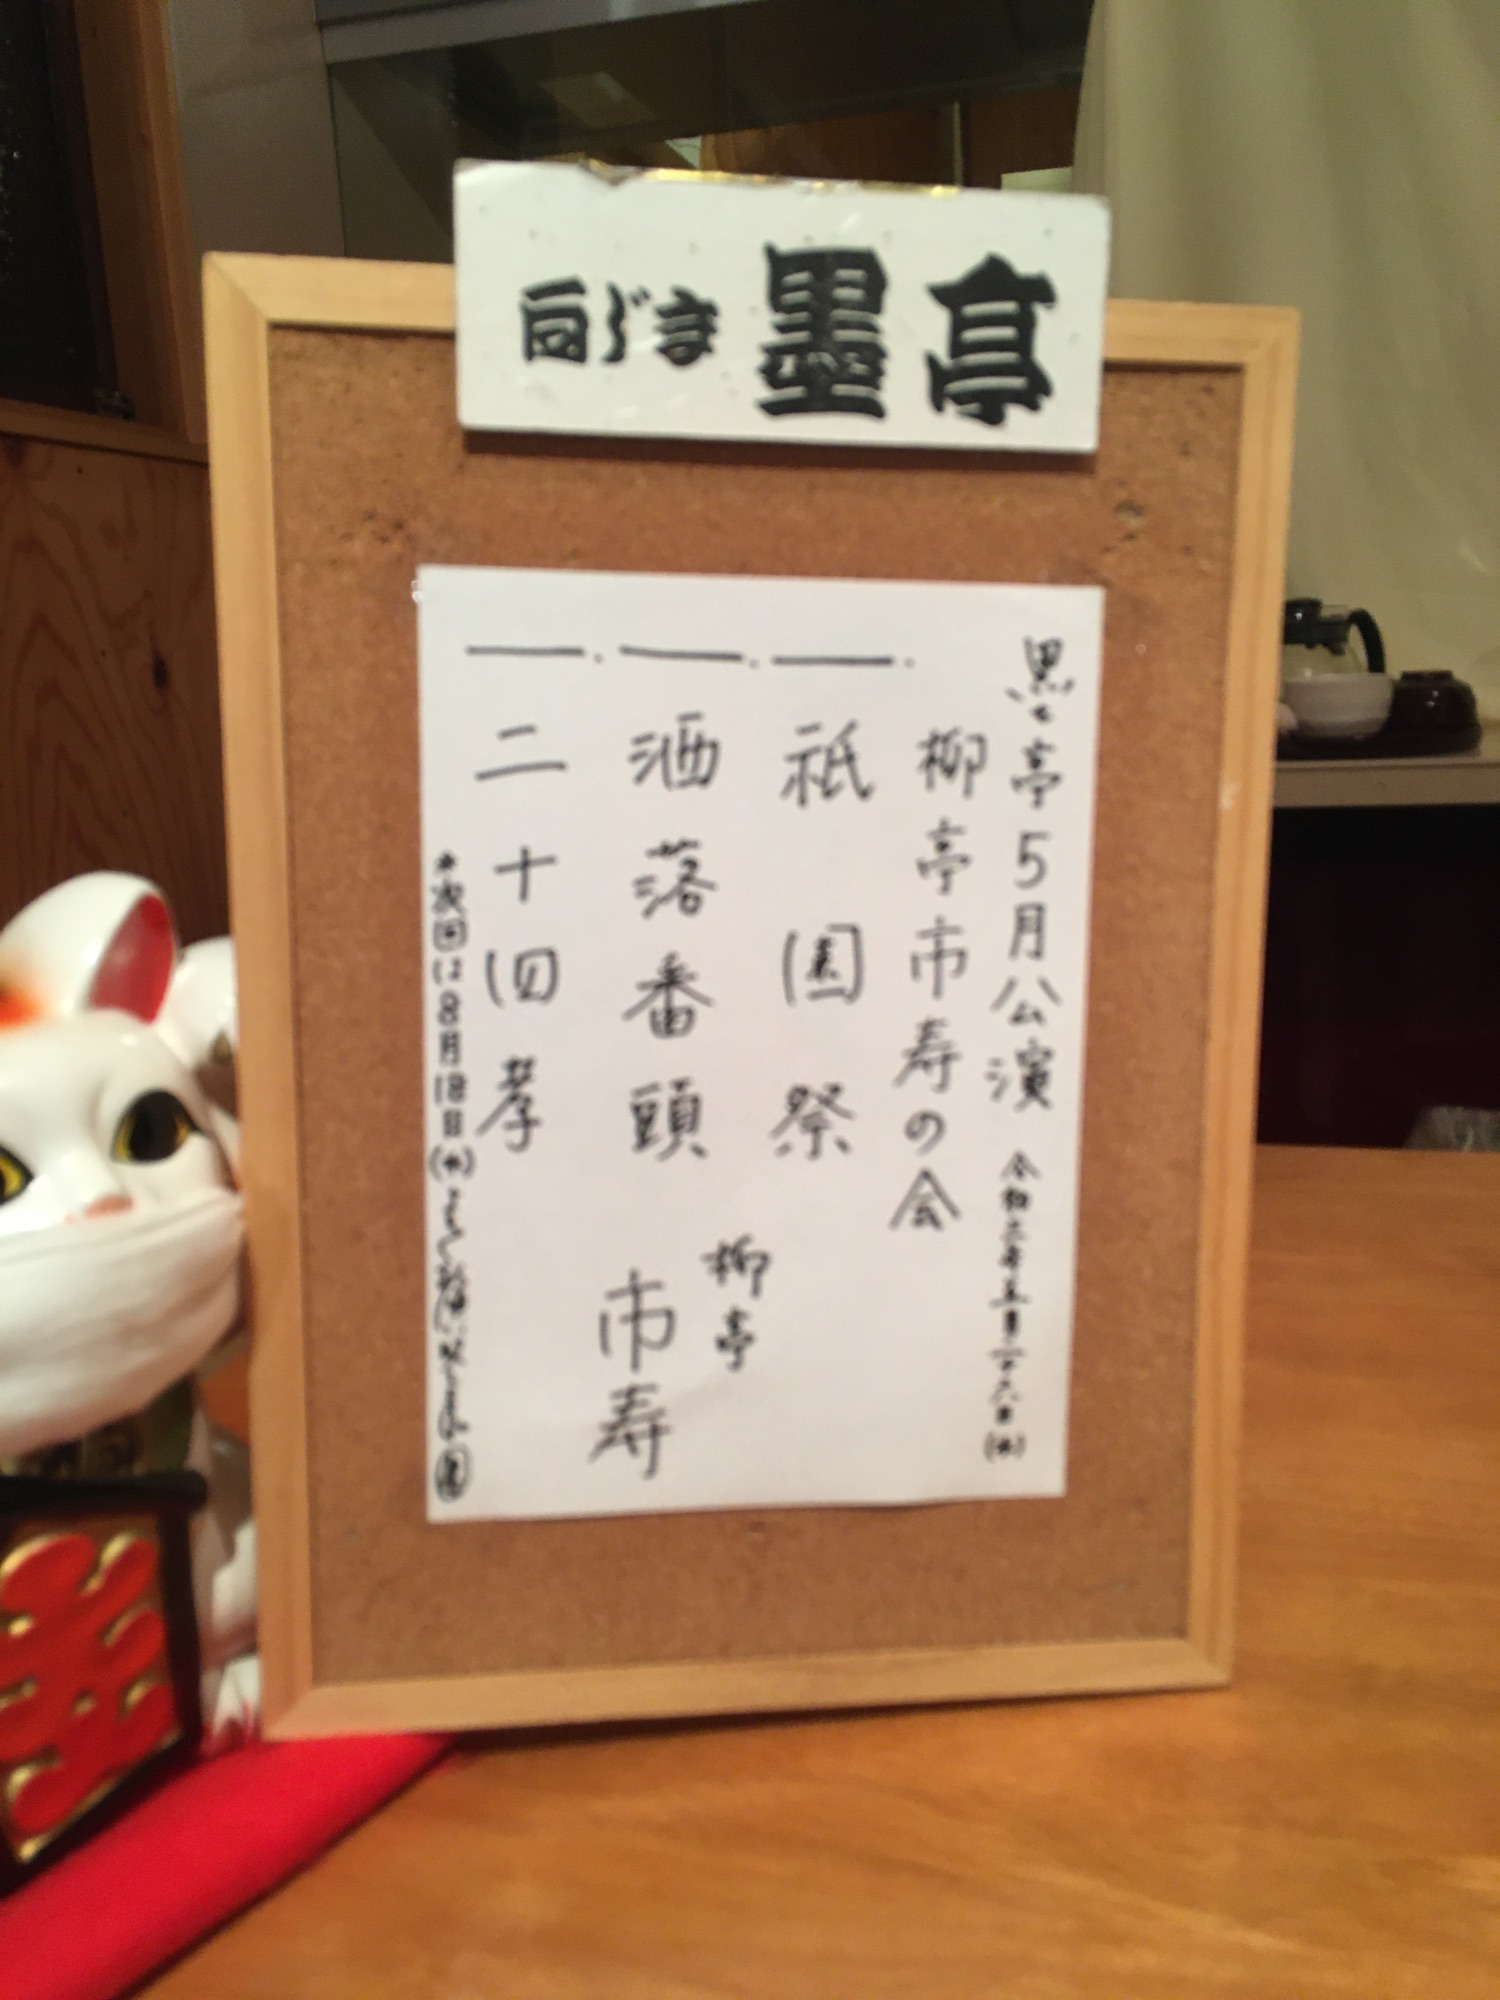 向じま 墨亭
墨亭5月公演 令和三年五月二十六日(水)
柳亭市寿の会
一. 祇園祭
一. 洒落番頭
一. 二十四孝
柳亭
市寿
*次回は8月18日(水)